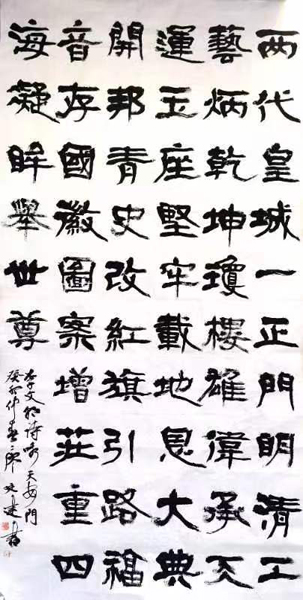 两代皇城一正門明清工
藝炳乾坤瓊樓雄偉承天
運玉座堅牢載地恩大典
開邦青史改紅旗引路福
音存國徽圖案增莊重四
海凝眸舉世尊
李文朝詩咏天安門
癸卯仲春書